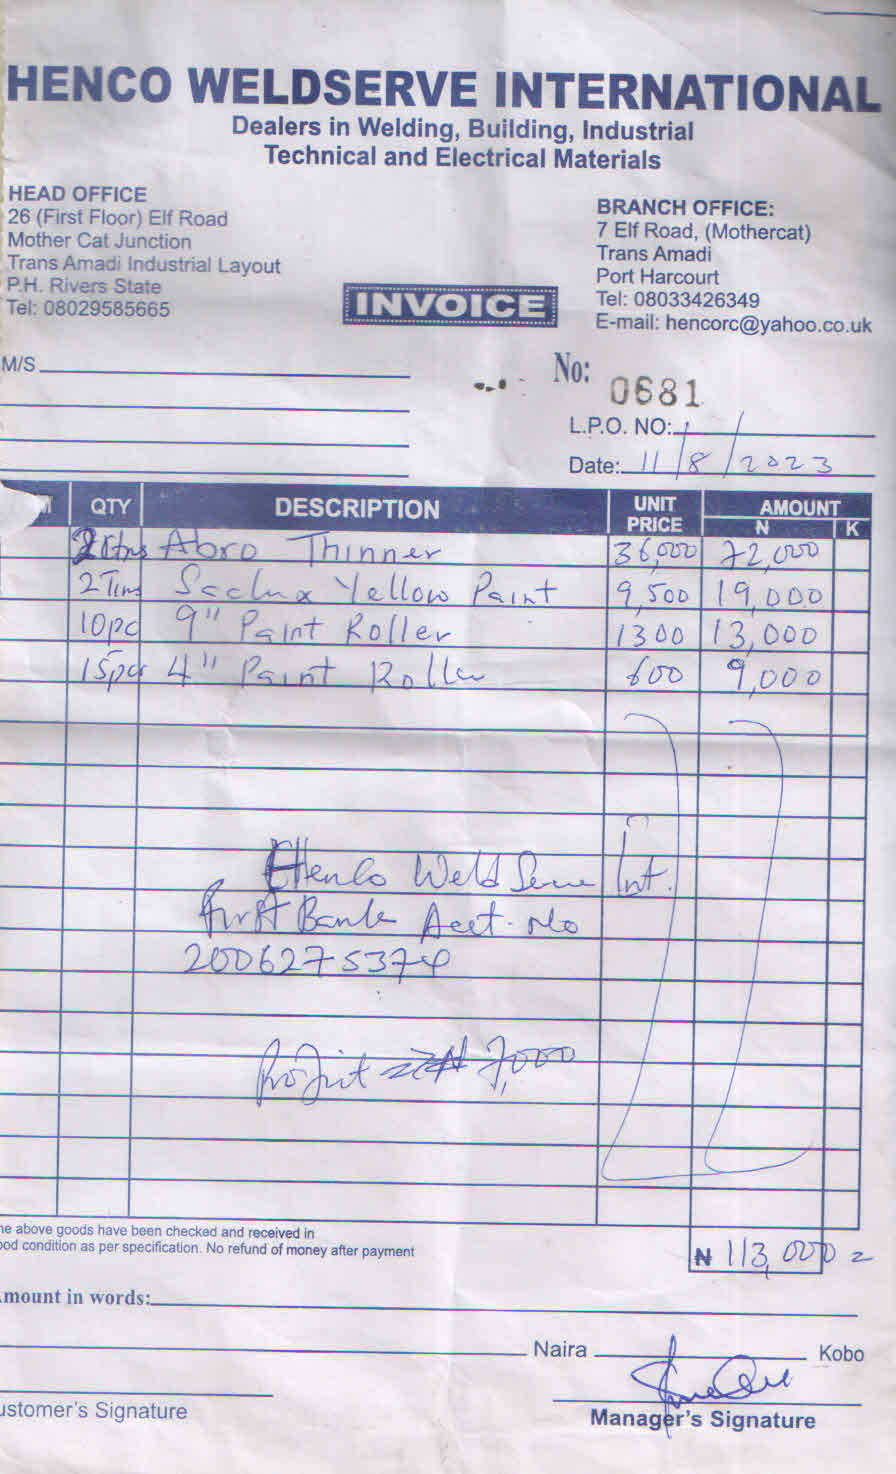 HENCO WELDSERVE INTERNATIONAL
Dealers in Welding, Building, Industrial
Technical and Electrical Materials
HEAD OFFICE
26 (First Floor) Elf Road
Mother Cat Junction
Trans Amadi Industrial Layout
P.H. Rivers State
Tel: 08029585665
BRANCH OFFICE:
7 Elf Road, (Mothercat)
Trans Amadi
Port Harcourt
Tel: 08033426349
E-mail: hencorc@yahoo.co.uk
INVOICE
M/S
No: 0681
L.P.O. NO:
Date: 11/8/2023
M QTY DESCRIPTION UNIT PRICE AMOUNT N K
2 Abro Thinner 36,000 72,000
2 Tins Yellow Paint 9,500 19,000
10pc 9" Paint Roller 1300 13,000
15pcs 4" Paint Roller 600 9,000
Henco Weld Serve Int.
First Bank Acct. No
2006275374
Profit 7,000
he above goods have been checked and received in
ood condition as per specification. No refund of money after payment
₦ 113,000 =
mount in words:
Naira Kobo
ustomer's Signature
Manager's Signature